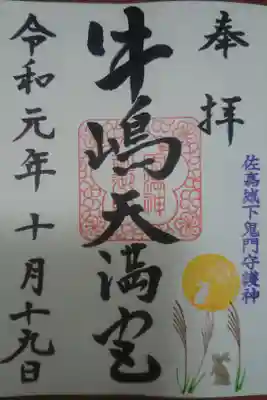 奉拝
佐嘉城下鬼門守護神
牛嶋天満宮
令和元年十月十九日